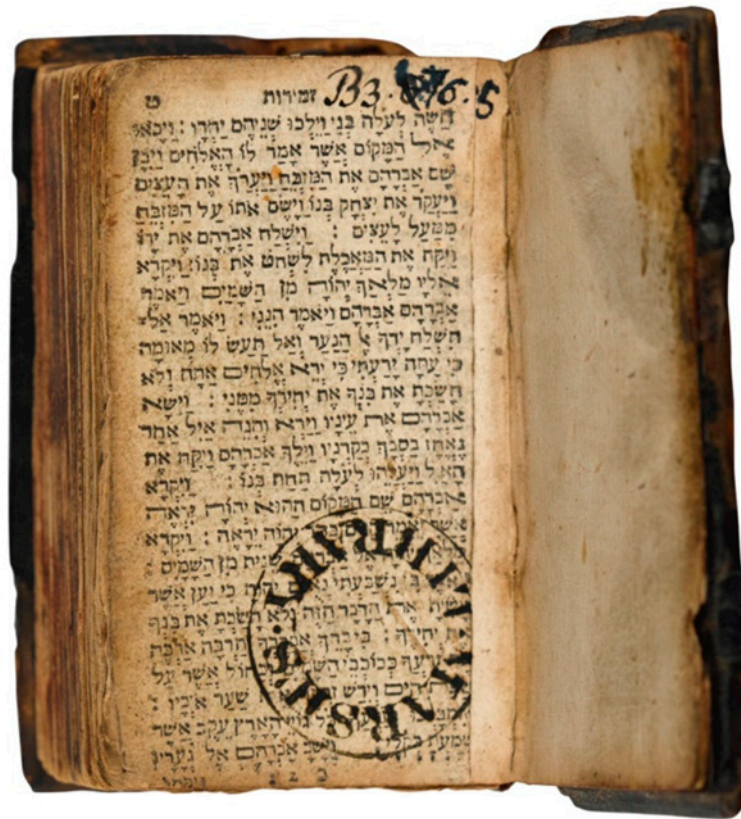 זמירות ט
הַשֶּׂה לְעֹלָה בְּנִי וַיֵּלְכוּ שְׁנֵיהֶם יַחְדָּו : וַיָּבֹאוּ
אֶל הַמָּקוֹם אֲשֶׁר אָמַר לוֹ הָאֱלֹהִים וַיִּבֶן
שָׁם אַבְרָהָם אֶת הַמִּזְבֵּחַ וַיַּעֲרֹךְ אֶת הָעֵצִים
וַיַּעֲקֹד אֶת יִצְחָק בְּנוֹ וַיָּשֶׂם אֹתוֹ עַל הַמִּזְבֵּחַ
מִמַּעַל לָעֵצִים : וַיִּשְׁלַח אַבְרָהָם אֶת יָדוֹ
וַיִּקַּח אֶת הַמַּאֲכֶלֶת לִשְׁחֹט אֶת בְּנוֹ וַיִּקְרָא
אֵלָיו מַלְאַךְ יְהוָֹה מִן הַשָּׁמַיִם וַיֹּאמֶר
אַבְרָהָם אַבְרָהָם וַיֹּאמֶר הִנֵּנִי : וַיֹּאמֶר אַל
תִּשְׁלַח יָדְךָ אֶל הַנַּעַר וְאַל תַּעַשׂ לוֹ מְאוּמָה
כִּי עַתָּה יָדַעְתִּי כִּי יְרֵא אֱלֹהִים אַתָּה וְלֹא
חָשַׂכְתָּ אֶת בִּנְךָ אֶת יְחִידְךָ מִמֶּנִּי : וַיִּשָּׂא
אַבְרָהָם אֶת עֵינָיו וַיַּרְא וְהִנֵּה אַיִל אַחַר
נֶאֱחַז בַּסְּבַךְ בְּקַרְנָיו וַיֵּלֶךְ אַבְרָהָם וַיִּקַּח אֶת
הָאַיִל וַיַּעֲלֵהוּ לְעֹלָה תַּחַת בְּנוֹ : וַיִּקְרָא
אַבְרָהָם שֵׁם הַמָּקוֹם הַהוּא יְהוָֹה יִרְאֶה
אֲשֶׁר יְהוָֹה יֵרָאֶה : וַיִּקְרָא
שֵׁנִית מִן הַשָּׁמַיִם :
נִשְׁבַּעְתִּי נְאֻם יְהוָֹה כִּי יַעַן אֲשֶׁר
אֶת הַדָּבָר הַזֶּה וְלֹא חָשַׂכְתָּ אֶת בִּנְךָ
יְחִידְךָ : כִּי בָרֵךְ אֲבָרֶכְךָ וְהַרְבָּה אַרְבֶּה
כְּכוֹכְבֵי אֲשֶׁר עַל
הַיָּם וְיִרַשׁ שַׁעַר אֹיְבָיו :
הָאָרֶץ עֵקֶב אֲשֶׁר
שָׁמַעְתָּ בְּקֹלִי : וַיָּשָׁב אַבְרָהָם אֶל נְעָרָיו